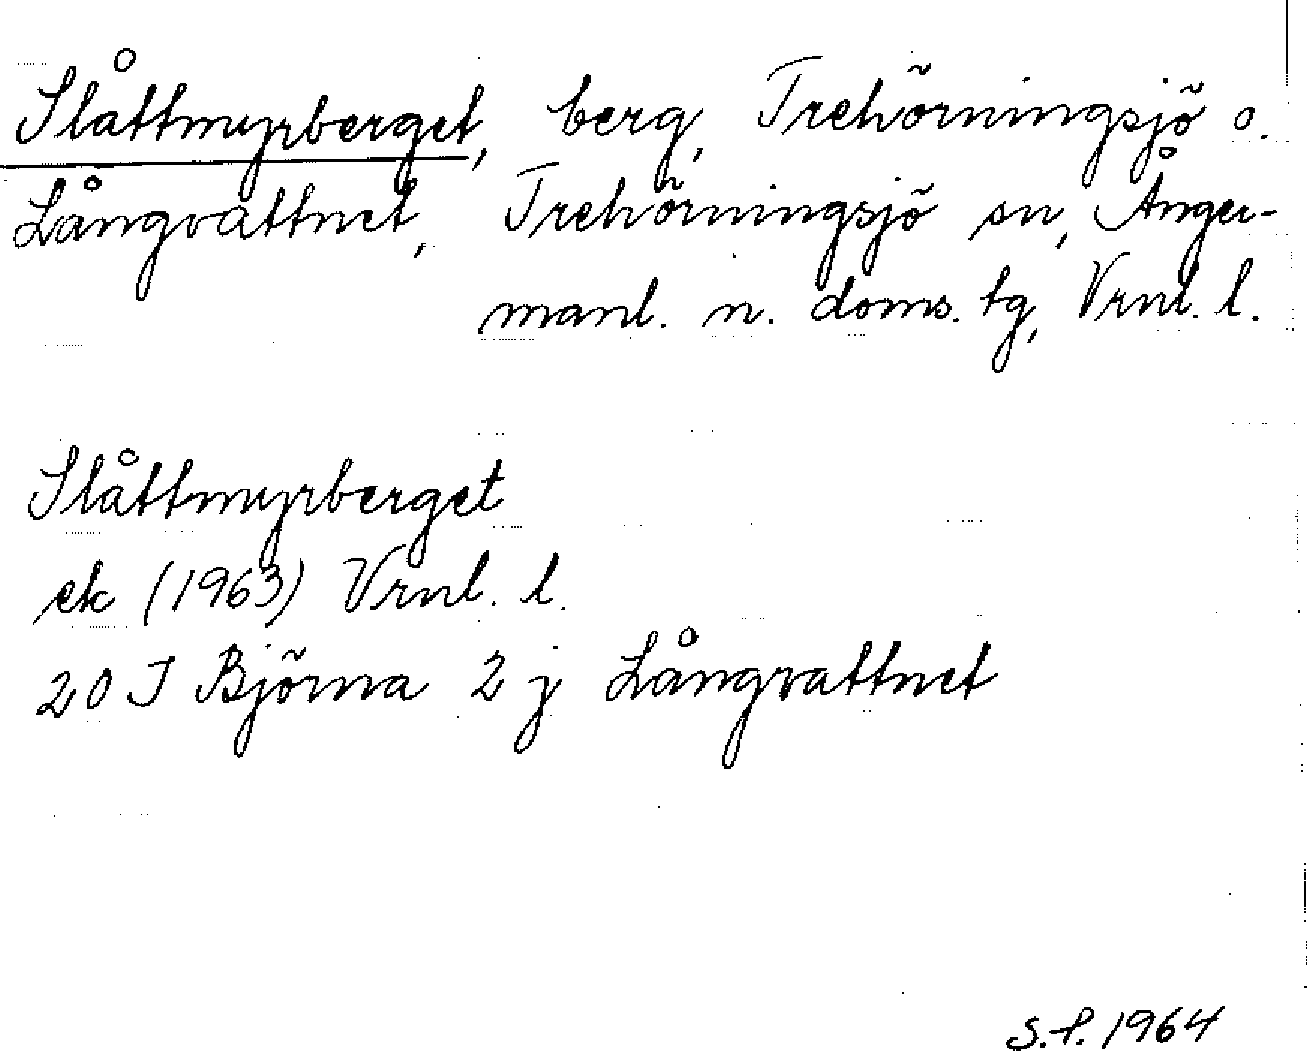 Slåttmyrberget, berg, Trehörningsjö o.
Långvattnet, Trehörningsjö sn, Ånger-
manl. n. doms. tg, Vrnl. l.
Slåttmyrberget
ek (1963) Vrnl. l.
20 J Björna 2 j Långvattnet
S.P. 1964